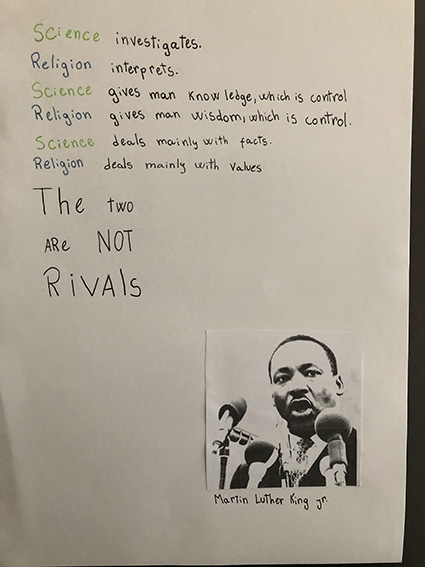 Science investigates.
Religion interprets.
Science gives man knowledge, which is control
Religion gives man wisdom, which is control.
Science deals mainly with facts.
Religion deals mainly with values
The two
ARe NOT
RivAls
Martin Luther King jr.